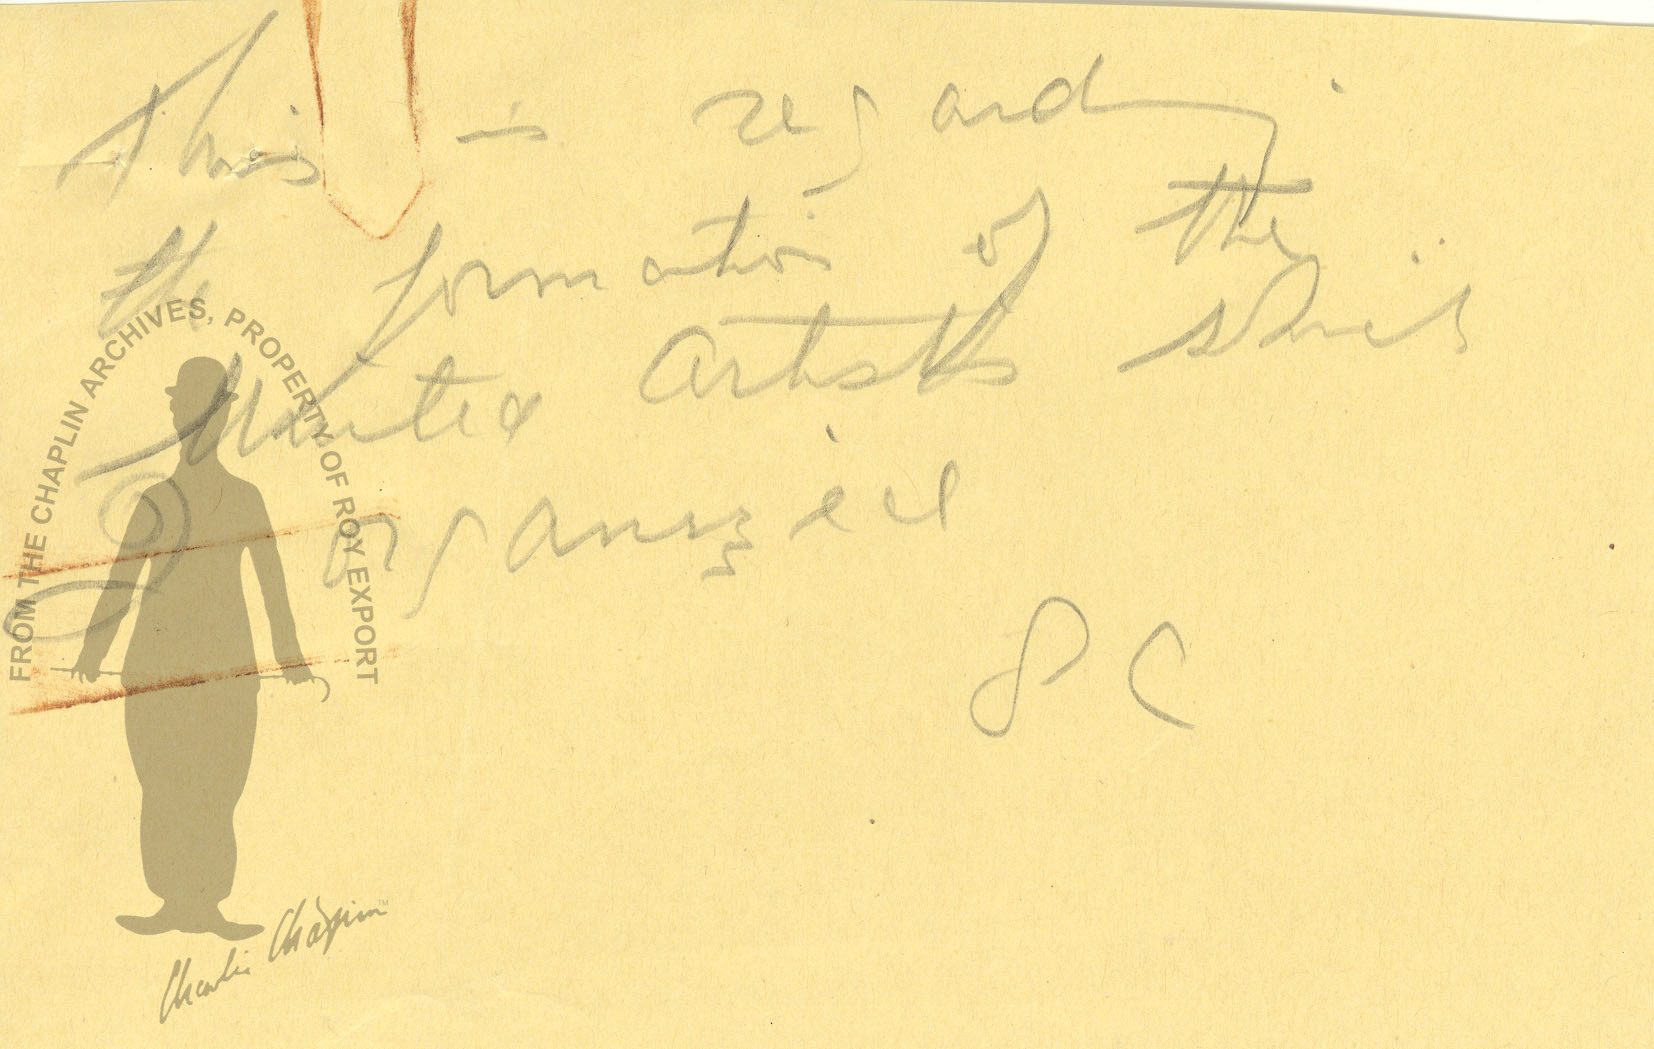 This is regarding
the formation of the
United Artists
I organized
S C
FROM THE CHAPLIN ARCHIVES, PROPERTY OF ROY EXPORT
Charlie Chaplin™